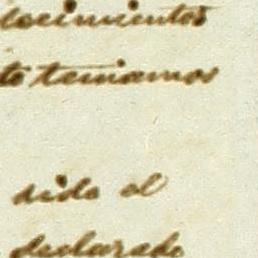 locimientos
to teniamos
dido el
declarado